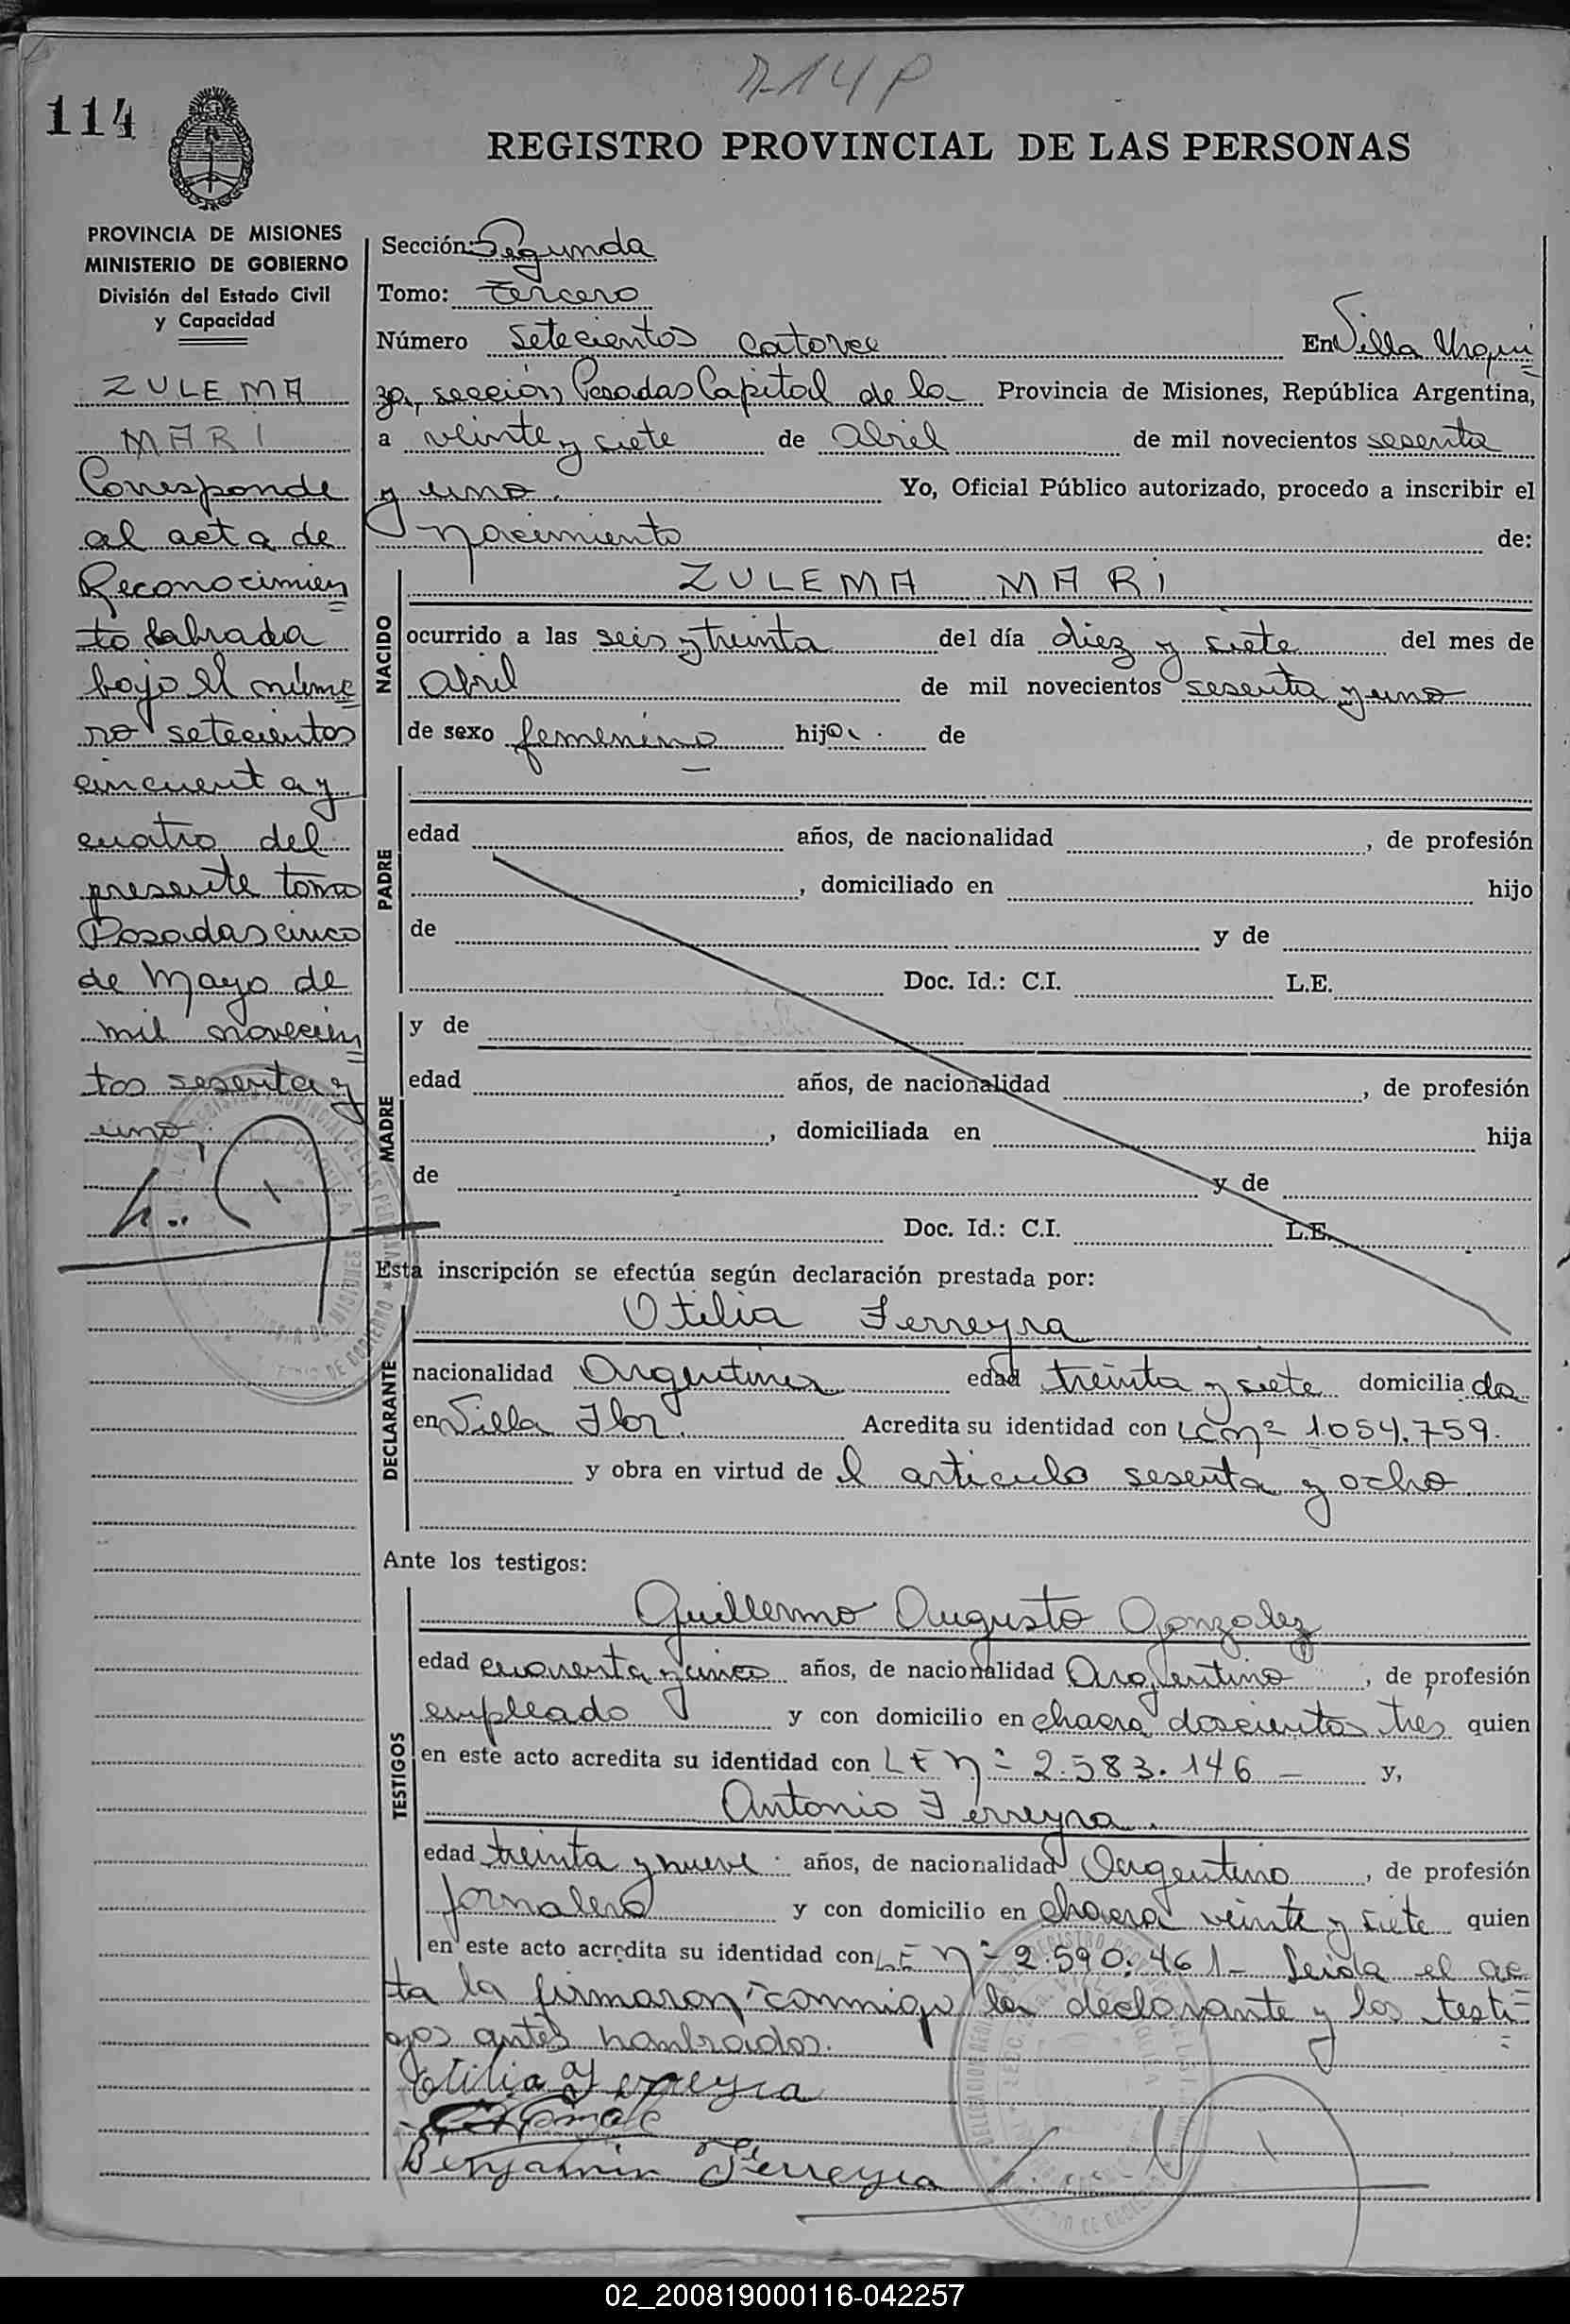 714 P
114
REGISTRO PROVINCIAL DE LAS PERSONAS
PROVINCIA DE MISIONES
MINISTERIO DE GOBIERNO
División del Estado Civil
y Capacidad
ZULEMA
MARI
Corresponde
al acta de
Reconocimien
to labrada
bajo el núme
ro setecientos
cincuenta y
cuatro del
presente tomo
Posadas cinco
de Mayo de
mil novecien
tos sesenta y
uno.
Sección: Segunda
Tomo: tercero
Número setecientos catorce En Villa Urqui
za, sección Posadas Capital de la Provincia de Misiones, República Argentina,
a veinte y siete de abril de mil novecientos sesenta
y uno. Yo, Oficial Público autorizado, procedo a inscribir el
nacimiento de:
NACIDO
ZULEMA MARI
ocurrido a las seis y treinta del día diez y siete del mes de
abril de mil novecientos sesenta y uno
de sexo femenino hija de
PADRE
edad años, de nacionalidad , de profesión
, domiciliado en hijo
de y de
Doc. Id.: C.I. L.E.
MADRE
y de
edad años, de nacionalidad , de profesión
, domiciliada en hija
de y de
Doc. Id.: C.I. L.E.
Esta inscripción se efectúa según declaración prestada por:
DECLARANTE
Otilia Ferreyra
nacionalidad Argentina edad treinta y siete domiciliada
en Villa Flor. Acredita su identidad con LC nº 1.054.759.
y obra en virtud de l articulo sesenta y ocho
Ante los testigos:
TESTIGOS
Guillermo Augusto Gonzalez
edad cuarenta y cinco años, de nacionalidad Argentino , de profesión
empleado y con domicilio en chacra doscientos tres quien
en este acto acredita su identidad con LE nº 2.583.146 — y,
Antonio Ferreyra.
edad treinta y nueve años, de nacionalidad Argentino , de profesión
jornalero y con domicilio en chacra veinte y siete quien
en este acto acredita su identidad con LE nº 2.590.461— Leída el ac
ta la firmaron conmigo la declarante y los testi
gos antes nombrados.
Otilia Ferreyra
Benjamin Ferreyra
02_200819000116-042257